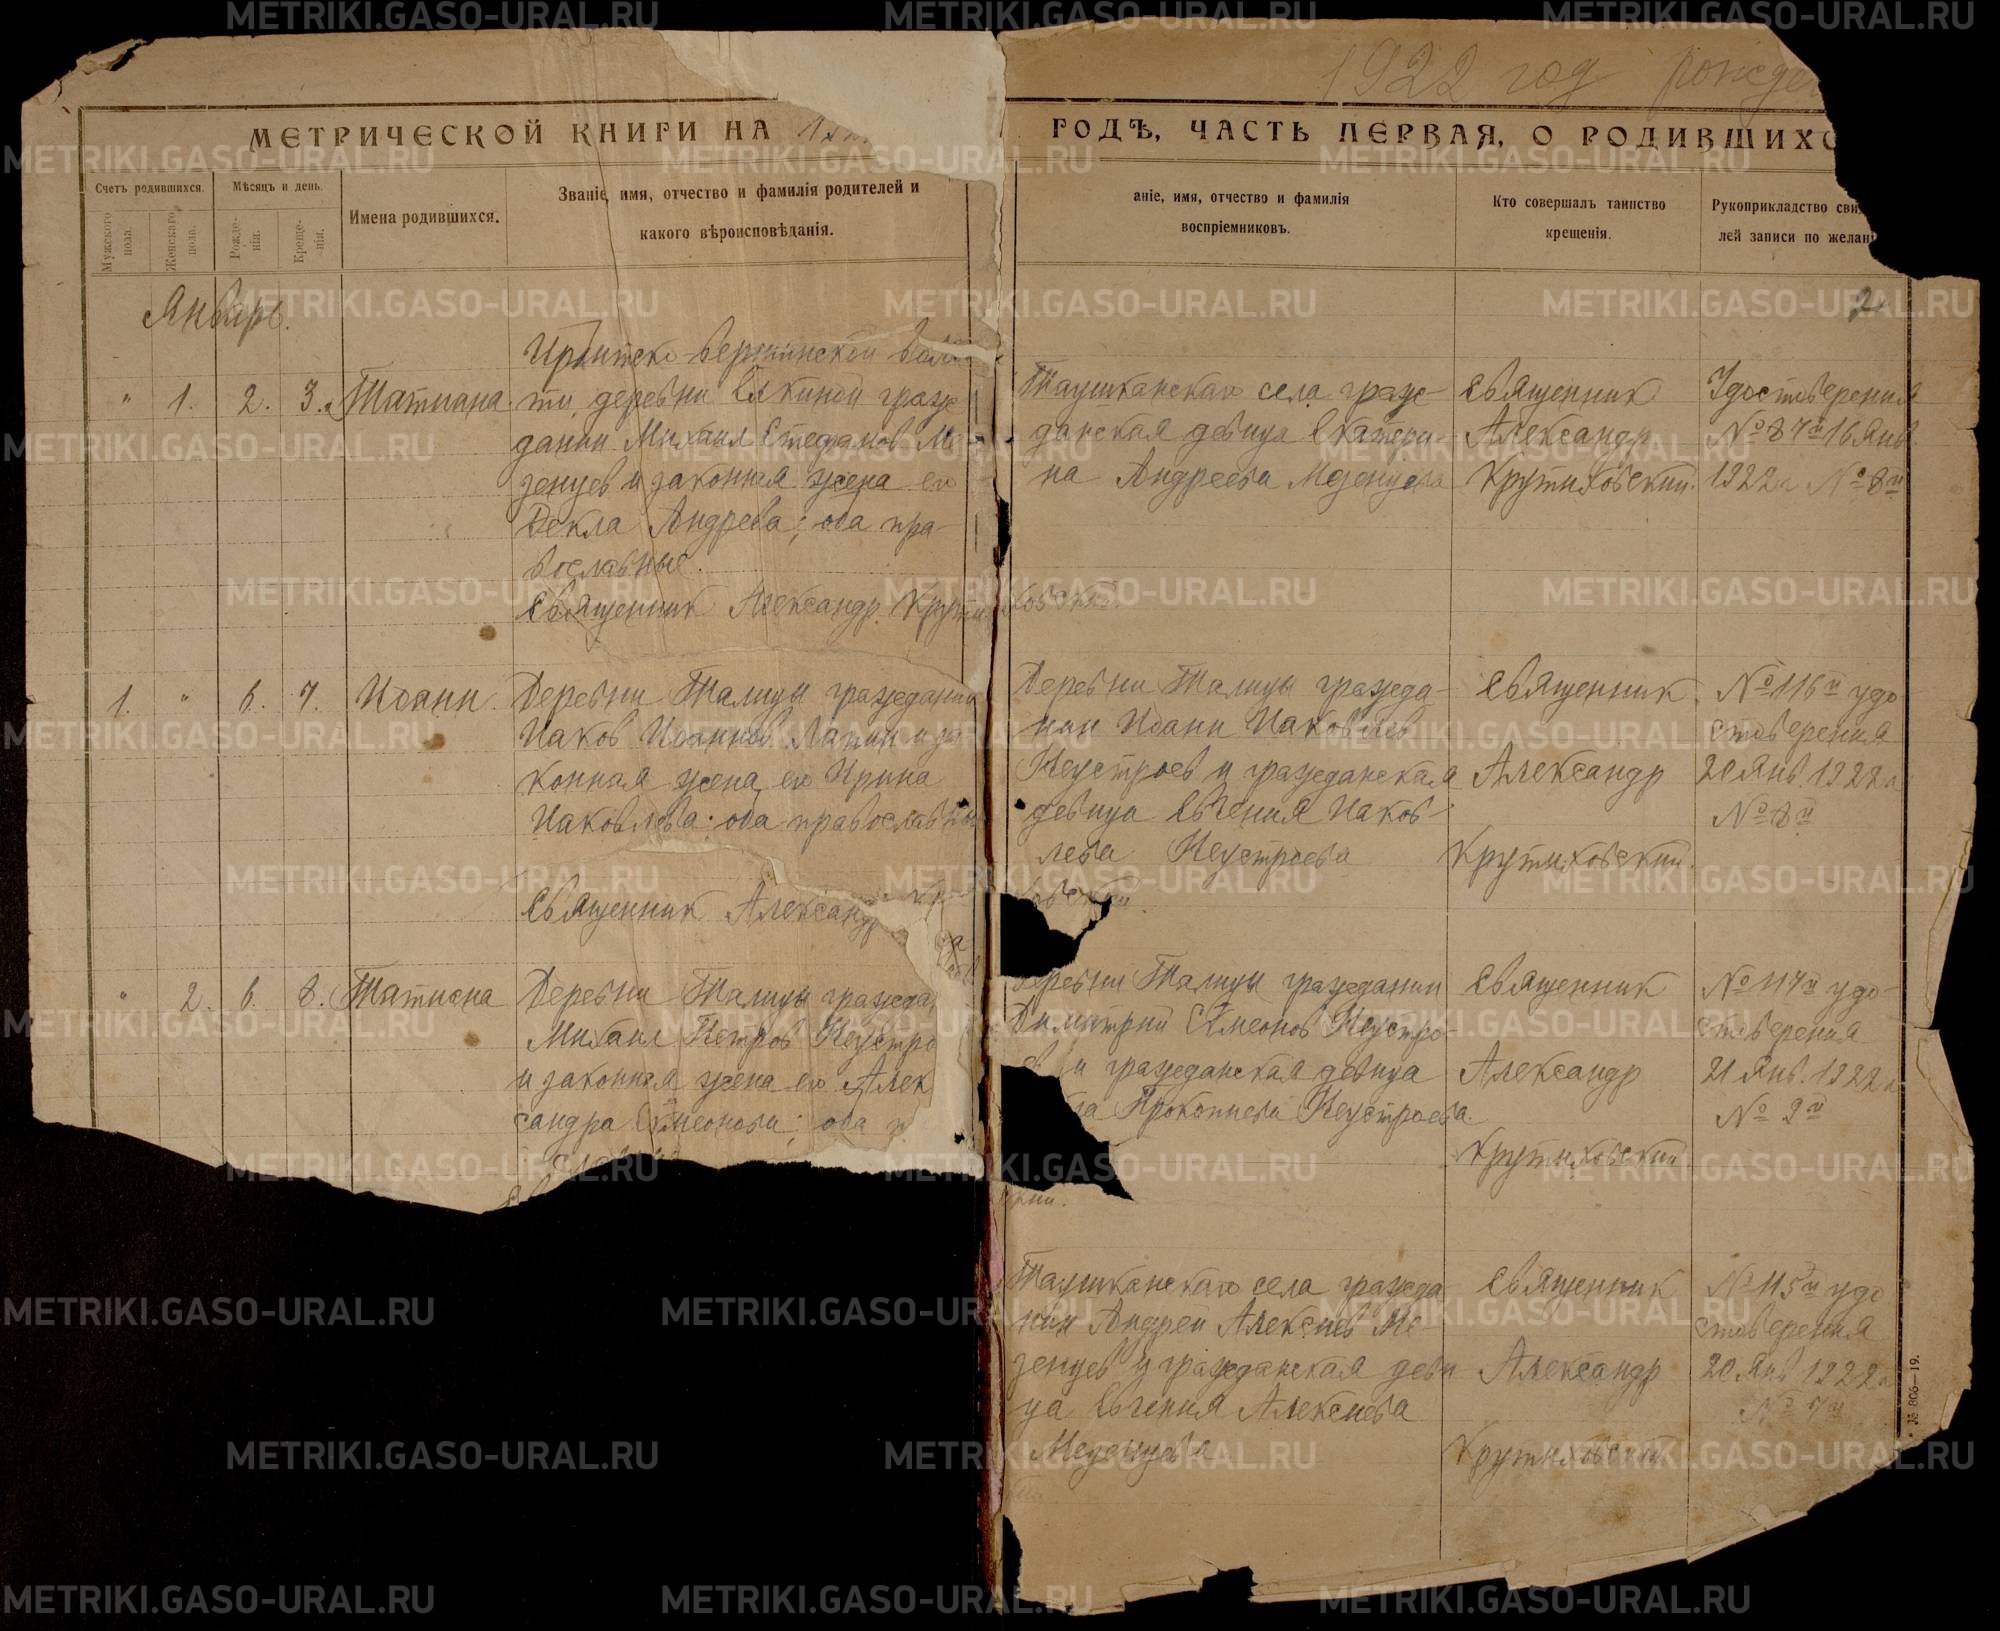 1922 год
МЕТРИЧЕСКОЙ КНИГИ НА
ГОДѢ, ЧАСТЬ ПЕРВАЯ, О РОДИВШИХС
Счетъ родившихся.
Мѣсяцъ и день.
Имена родившихся.
Званіе, имя, отчество и фамилія родителей и
какого вѣроисповѣданія.
Мужского пола.
Женскаго пола.
Рожде-
нія.
Креще-
нія.
аніе, имя, отчество и фамилія
воспріемниковъ.
Кто совершалъ таинство
крещенія.
Рукоприкладство сви
лей записи по желан
2
Январь.
" 1. 2. 3. Татиана.
Ирбитско-вершинской воло
сти, деревни граж
данин Михаил Стефанов Ме-
зенцев и законная жена его
Фекла Андреева; оба пра-
вославные.
Священник Александр Крути
ховский.
Таушканскаго села граж-
данская девица Екатери-
на Андреева Мезенцева
Священник
Александр
Крутиховский.
Удостоверения
№ 87й 16 Янв
1922 г. № 8й
1. " 6. 7. Иоанн.
Деревни Талицы гражданин
Иаков Иоаннов Лапин и за
конная жена его Ирина
Иаковлева; оба православны
Священник Александр
ховский.
Деревни Талицы гражда-
нин Иоанн Иаковлев
Неустроев и гражданская
девица Евгения Иаков-
лева Неустроева
Священник
Александр
Крутиховский.
№ 116й удо
стоверения
20 Янв. 1922 г
№ 8й
" 2. 6. 8. Татиана
Деревни Талицы гражда
Михаил Петров Неустро
и законная жена его Алек
сандра Симеонова; оба п
еревни Талицы гражданин
Димитрий Симеонов Неустро-
ев и гражданская девица
Прокопиева Неустроева.
Священник
Александр
Крутиховский
№ 117й удо-
стоверения
21 Янв. 1922 г
№ 9й
Таушканскаго села гражда
нин Андрей Алексиев Ме-
зенцев и гражданская деви
ца Евгения Алексиева
Мезенцева
Священник
Александр
Крутиховский
№ 115й удо
стоверения
20 Янв. 1922 г
№ 7й
№ 806—19.
METRIKI.GASO-URAL.RU